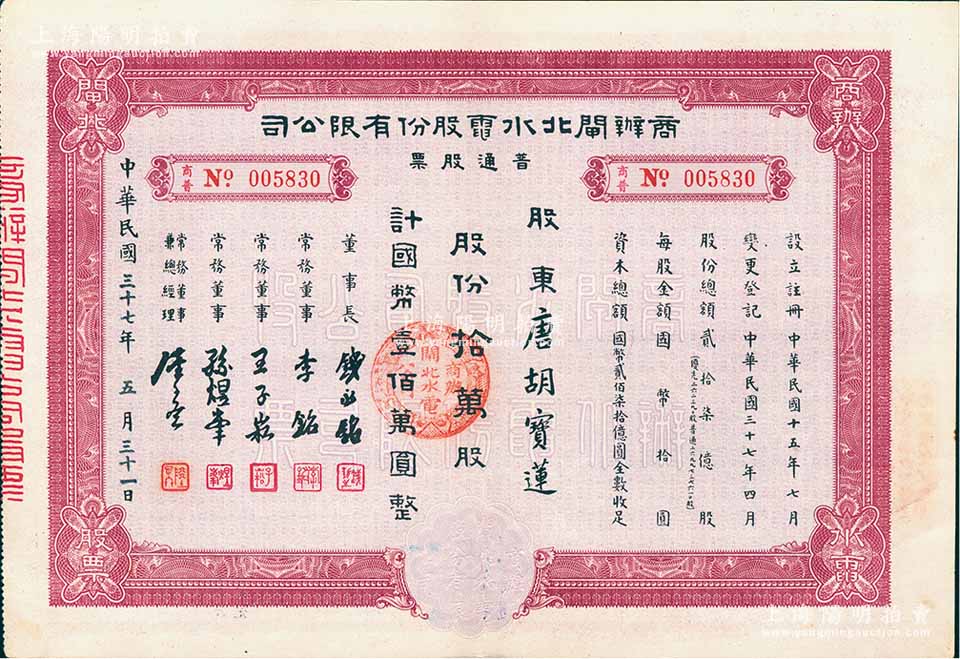 上海陽明拍賣
商辦
閘北
水電
股票
商辦閘北水電股份有限公司
普通股票
商普 Nº 005830
商普 Nº 005830
設立註冊 中華民國十五年七月
變更登記 中華民國三十七年四月
股份總額貳拾柒億股
每股金額國幣拾圓
資本總額國幣貳佰柒拾億圓全數收足
股東唐胡寶蓮
股份拾萬股
計國幣壹佰萬圓整
董事長
常務董事 李銘
常務董事 王子崧
常務董事 孫煜峯
常務董事兼總經理
中華民國三十七年五月三十一日
上海陽明拍賣
www.yangmingauction.com